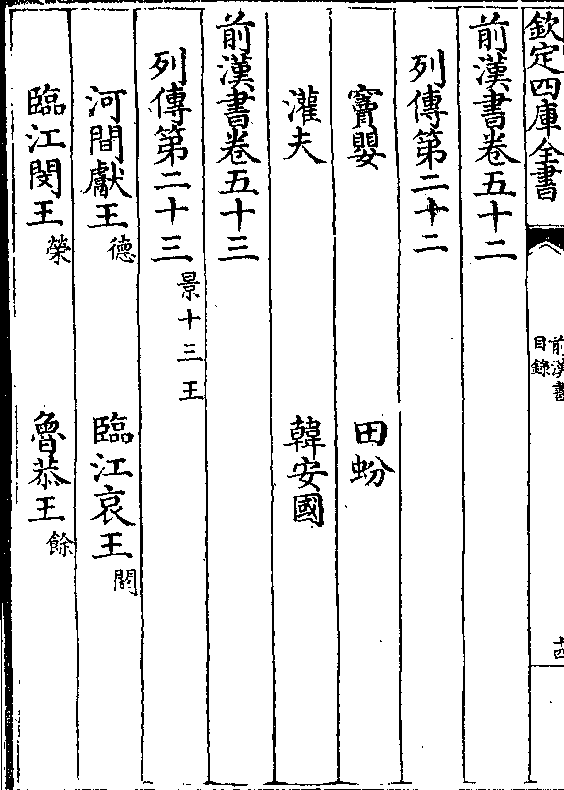 欽定四庫全書
前漢書目錄
十四
前漢書卷五十二
列傳第二十二
竇嬰 田蚡
灌夫 韓安國
前漢書卷五十三
列傳第二十三 景十三王
河間獻王 德 臨江哀王 閼
臨江閔王 榮 魯恭王 餘